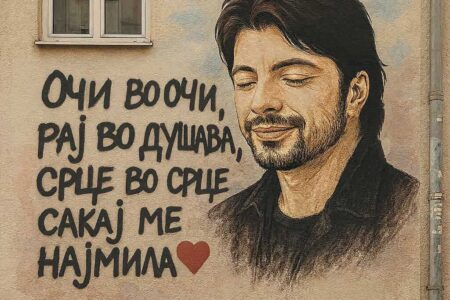 Очи во очи,
рај во душава,
срце во срце
сакај ме
најмила